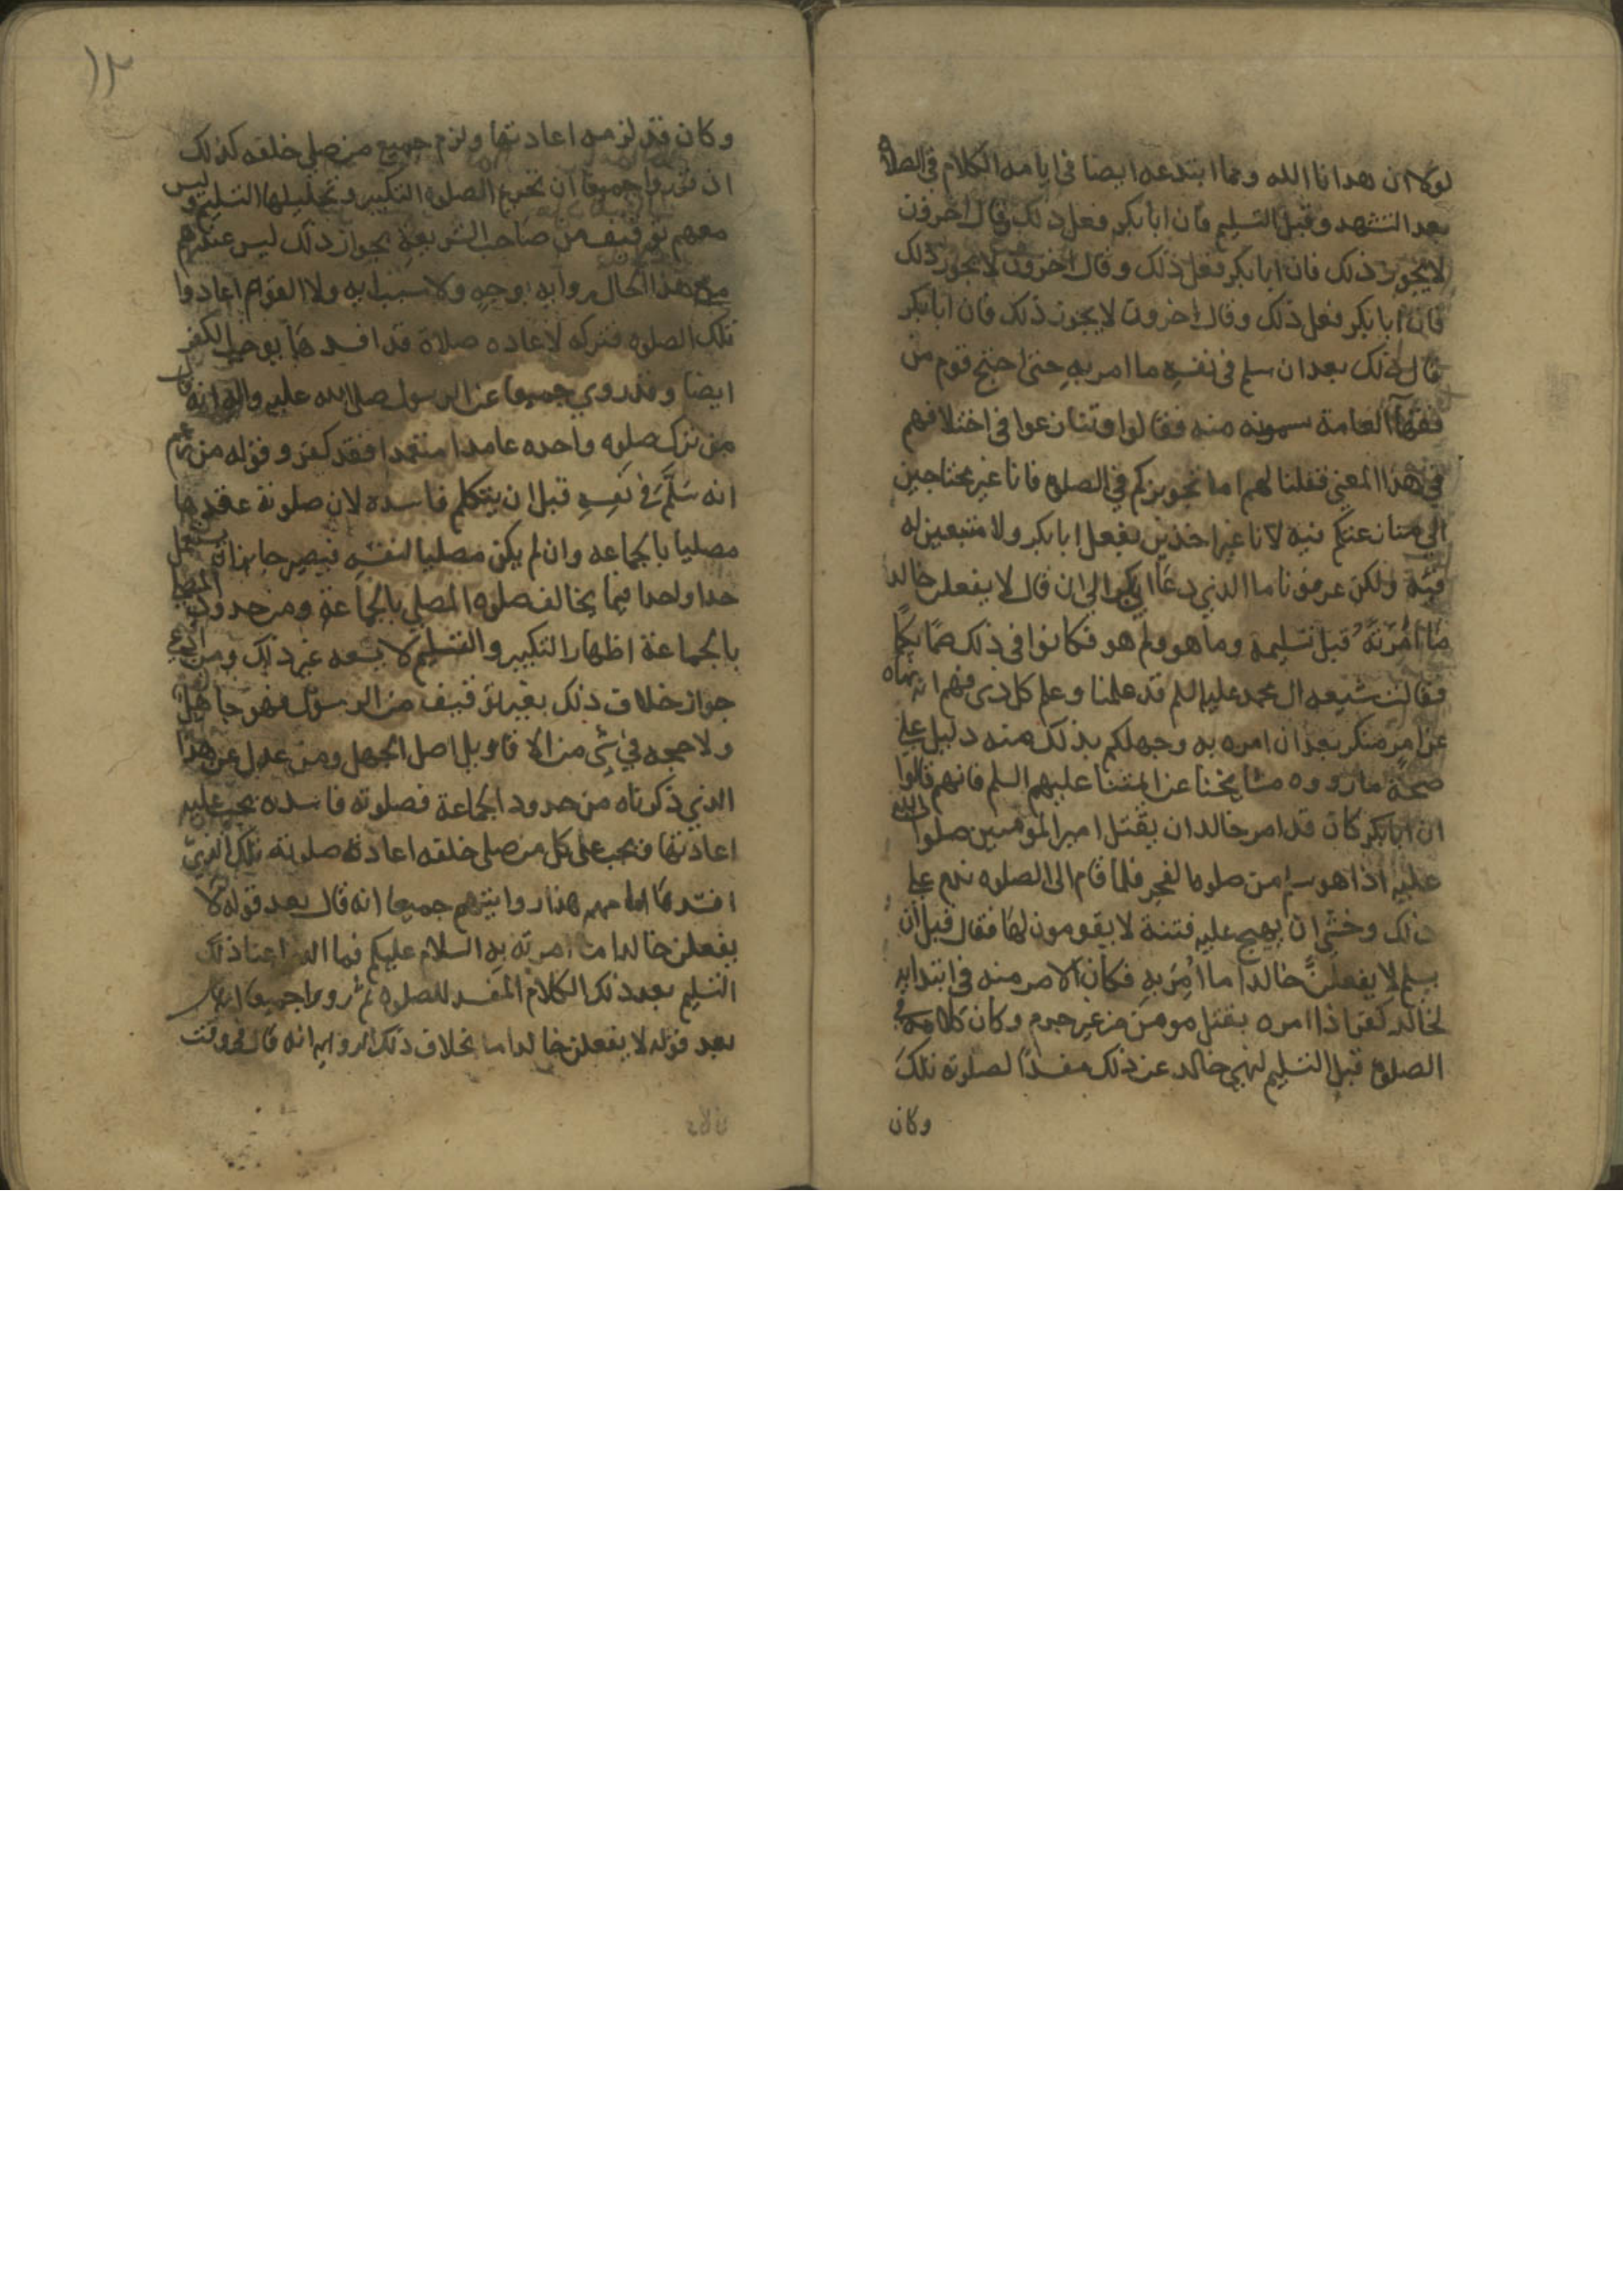 لولا ان هدانا الله ومما ابتدعه ايضا في ايامه الكلام في الصلاة
بعد التشهد وقبل التسليم فان ابابكر فعل ذلك وقال اخرون
لا يجوز ذلك فان ابابكر فعل ذلك وقال اخرون لا يجوز ذلك
فان ابابكر فعل ذلك وقال اخرون لا يجوز ذلك فان ابابكر
قال ذلك بعد ان سلم في نفسه ما امر به حتى احتج قوم من
فقهآ العامة منه فقالوا وتنازعوا في اختلافهم
في هذا المعنى فقلنا لهم اما تجويزكم في الصلوة فانا غير محتاجين
الى منازعتكم فيه لانا غير اخذين بفعل ابابكر ولا متبعين له
فيه ولكن عرفونا ما الذي دعا ابابكر الى ان قال لا يفعلن خالد
ما امرته قبل تسليمه وما هو ولم هو فكانوا في ذلك صما بكما
فقالت شيعه ال محمد عليه السلم قد علمنا وعلم كل ذى فهم انه نهاه
عن امر منكر بعد ان امره به وجهلكم بذلك منه دليل على
صحة ما رووه مشايخنا عن ائمتنا عليهم السلم فانهم قالوا
ان ابابكر كان قد امر خالد ان يقتل امير المومنين صلوات الله
عليه اذا هو سلم من صلوه الفجر فلما قام الى الصلوه ندم على
ذلك وخشي ان يهيج عليه فتنة لا يقومون لها فقال قبل ان
يسلم لا يفعلنّ خالد ما اُمِرَ بهِ فكان الامر منه في ابتدايه
لخالد كفرا اذا امره بقتل مومن من غير جرم وكان كلامه في
الصلوة قبل التسليم لنهي خالد عن ذلك مفسداً لصلوته تلك
وكان
١٣
وكان قد لزمه اعادتها ولزم جميع من صلى خلفه كذلك
اذ رووا جميعا ان تحريم الصلوه التكبير وتحليلها التسليم وليس
معهم توقيف من صاحب الشريعة بجواز ذلك ليس عندهم
مع هذا الحال روايه بوجه ولا سبب به ولا القوم اعادوا
تلك الصلوه فتركه لاعاده صلاة قد افسدها يوجب الكفر
ايضا وقد روي جميعا عن الرسول صلى الله عليه واله انه قال
من ترك صلوه واحده عامدا متعمدا فقد كفر وقوله من زعم
انه سَلَّمَ في نفسه قبل ان يتكلم فاسده لان صلوته عقدها
مصليا بالجماعه وان لم يكن مصليا لنفسه فيصير جايزا
حدا واحدا فيما يخالف صلوه المصلي بالجماعة ومن حدود المصلي
بالجماعة اظهار التكبير والتسليم لا يسعه غير ذلك ومن ادعى
جواز خلاف ذلك بغير توقيف من الرسول فهو جاهل
ولا حجه في شي من الاقاويل اصل الجهل ومن عدل عن هذا
الذي ذكرناه من حدود الجماعة فصلوته فاسده يجب عليه
اعادتها ويجب على كل من صلى خلفه اعادة صلوته تلك الذي
افسدها هذا روايتهم جميعا انه قال بعد قوله لا
يفعلن خالد ما امرته به السلام عليكم فما
التسليم بعد ذلك الكلام المفسد للصلوه ثم رووا جميعا
بعد قوله لا يفعلن خالد ما بخلاف ذلك انه قال في وقت